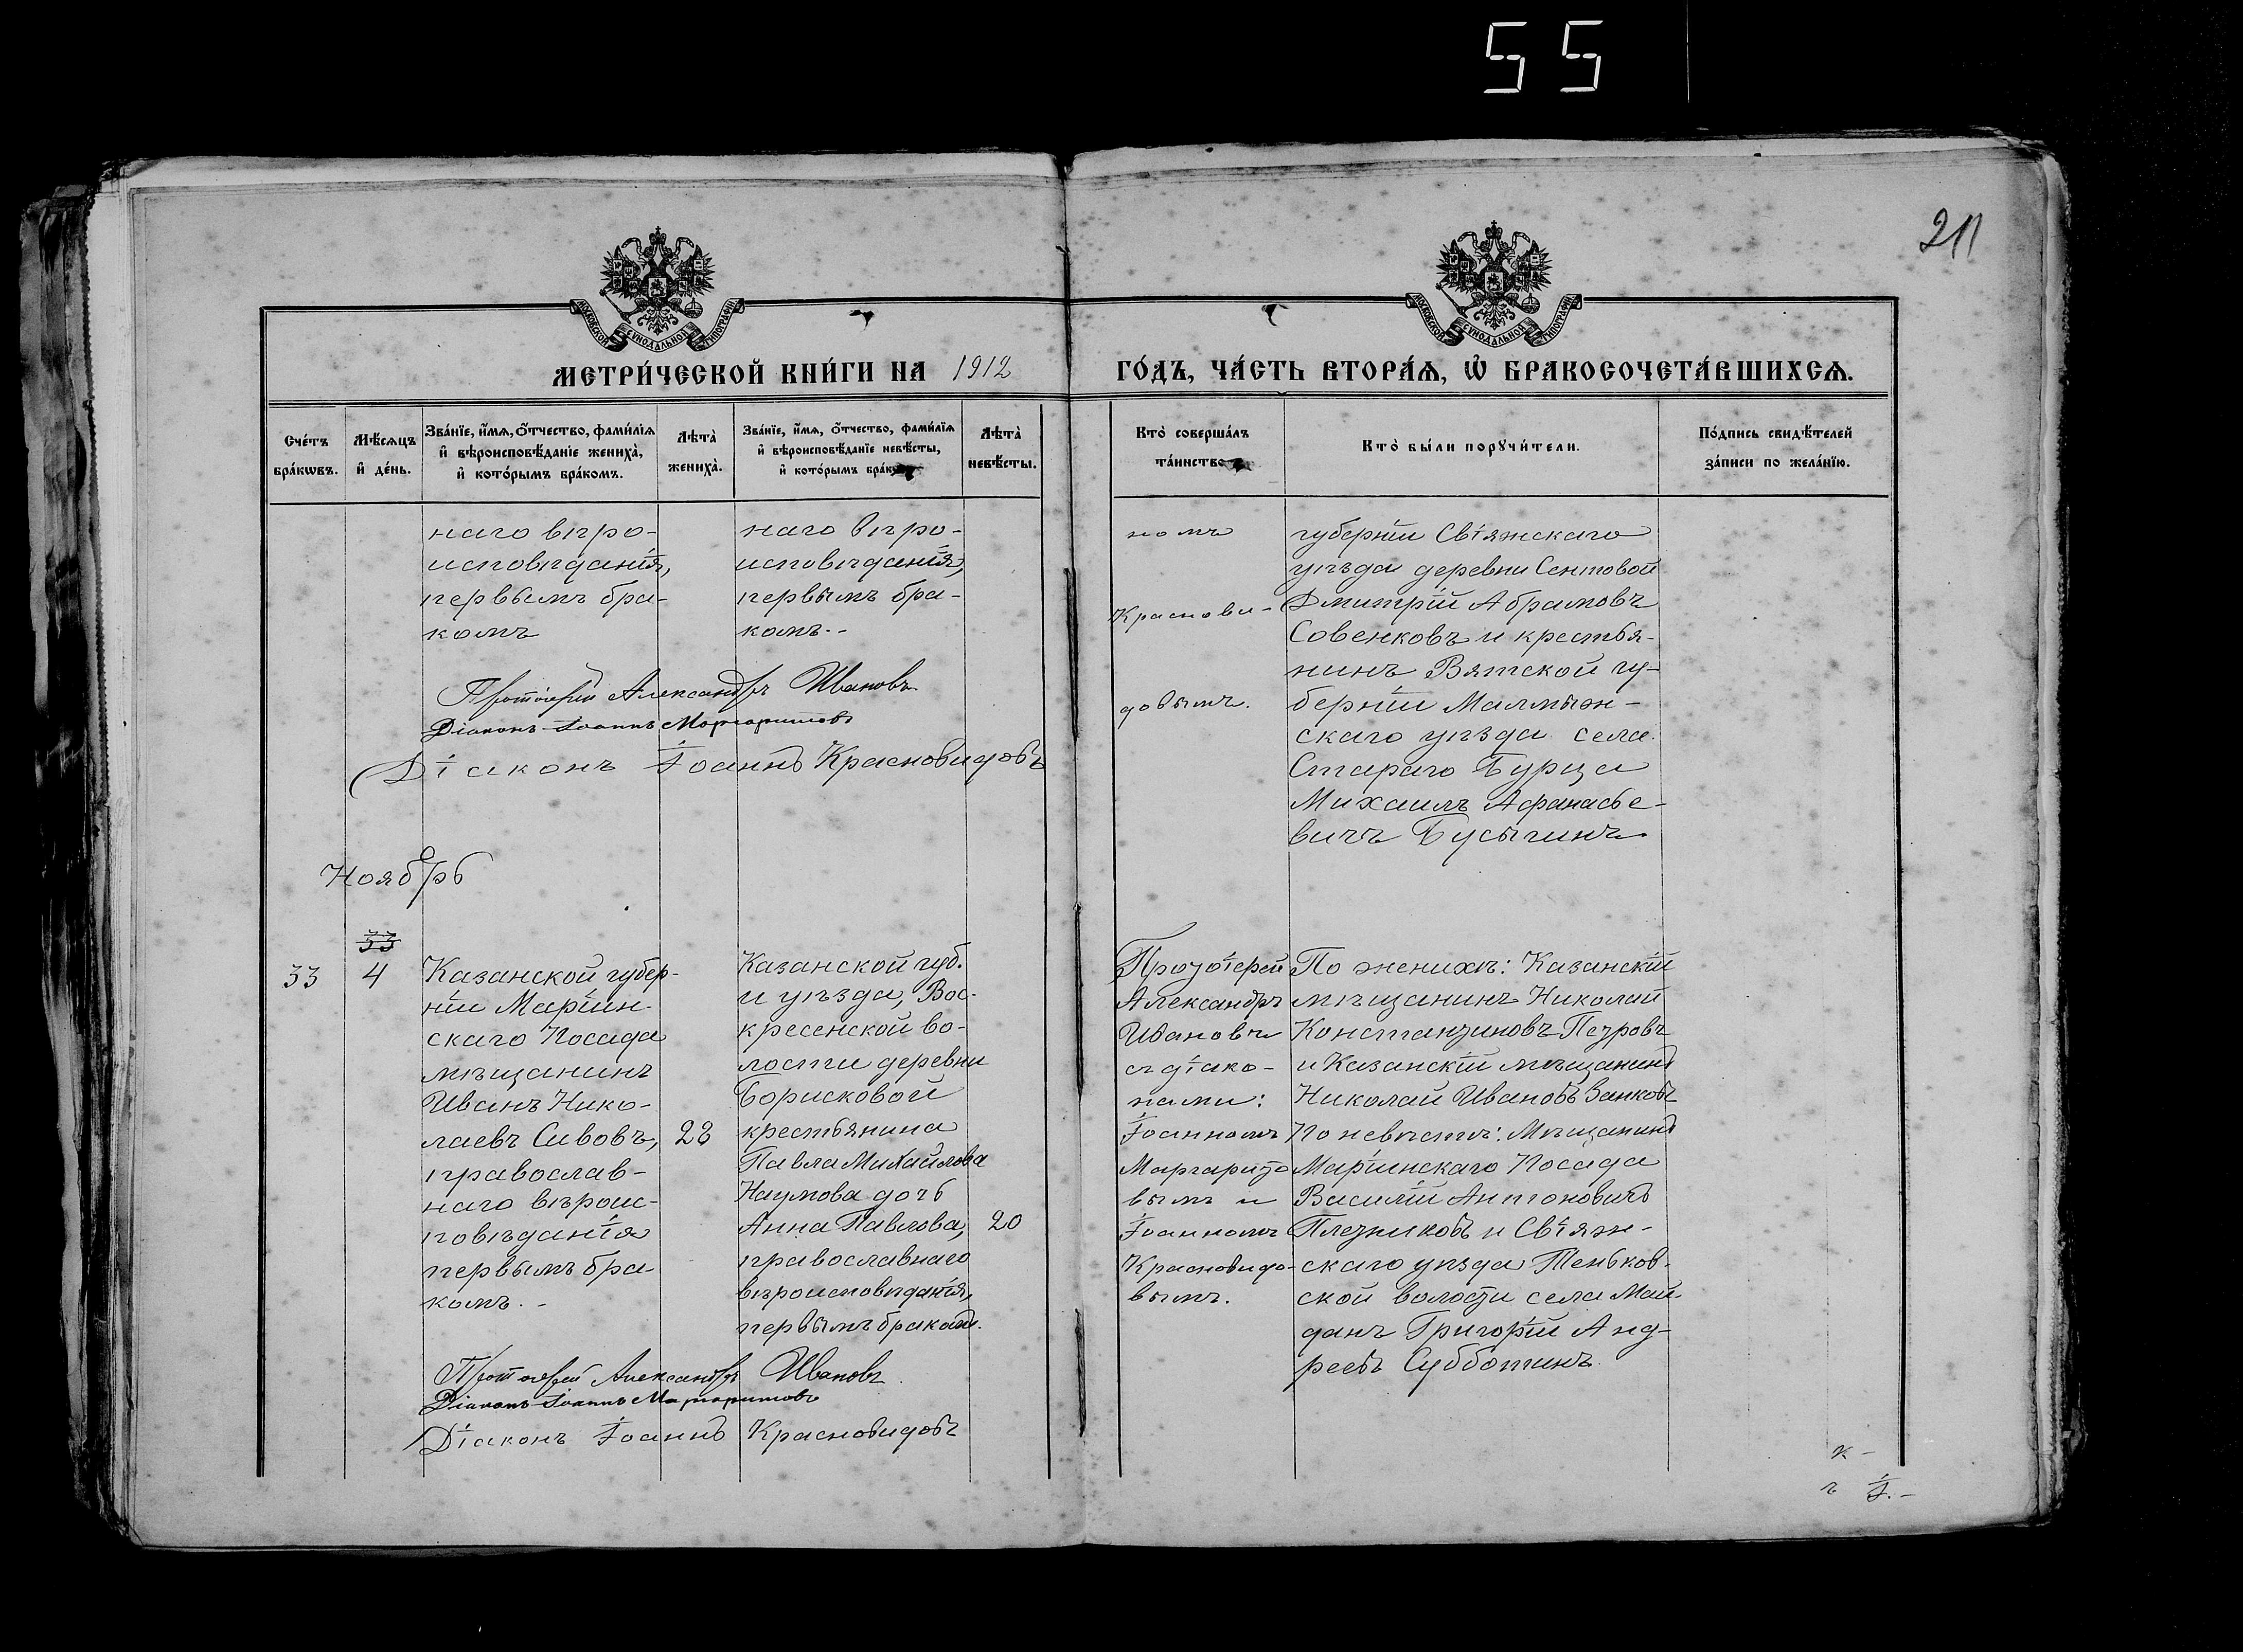 55
211
МОСКОВСКОЙ СѴНОДАЛЬНОЙ ТИПОГРАФІИ
МОСКОВСКОЙ СѴНОДАЛЬНОЙ ТИПОГРАФІИ
МЕТРИ́ЧЕСКОЙ КНИ́ГИ НА 1912 ГО́ДЪ, ЧА́СТЬ ВТОРА́Ѧ, Ѡ҆ БРАКОСОЧЕТА́ВШИХСѦ.
Сче́тъ
бра́кѡвъ.
Мѣ́сѧцъ
и҆ де́нь.
Зва́нїе, и҆́мѧ, ѻ҆́тчество, фами́лїѧ
и҆ вѣроисповѣ́данїе жениха̀,
и҆ кото́рымъ бра́комъ.
Лѣта̀
жениха̀.
Зва́нїе, и҆́мѧ, ѻ҆́тчество, фами́лїѧ
и҆ вѣроисповѣ́данїе невѣ́сты,
и҆ кото́рымъ бра́к
Лѣта̀
невѣ́сты.
Кто̀ соверша́лъ
та́инство
Кто̀ бы́ли порꙋчи́тели.
По́дпись свидѣ́телей
за́писи по жела́нїю.
наго вѣро-
исповѣданія,
первымъ бра-
комъ
наго вѣро-
исповѣданія,
первымъ бра-
комъ.-
номъ
Краснови-
довымъ.
губерніи Свіяжскаго
уѣзда деревни Сентовой
Дмитрій Абрамовъ
Совенковъ и крестья-
нинъ Вятской гу-
берніи Малмыж-
скаго уѣзда села
Стараго Бурца
Михаилъ Афанасье-
вичъ Бусыгинъ
Протоіерей Александръ Ивановъ
Діаконъ Іоаннъ Маргаритовъ
Діаконъ Іоаннъ Красновидовъ
Ноябрь
33
33
4
Казанской губер-
ніи Маріин-
скаго Посада
мѣщанинъ
Иванъ Нико-
лаевъ Сивовъ,
православ-
наго вѣроис-
повѣданія
первымъ бра-
комъ.-
23
Казанской губ.
и уѣзда, Вос-
кресенской во-
лости деревни
Борисковой
крестьянина
Павла Михайлова
Наумова дочь
Анна Павлова,
православнаго
вѣроисповѣданія,
первымъ бракомъ.
20
Протоіерей
Александръ
Ивановъ
съ діако-
нами:
Іоанномъ
Маргарито
вымъ и
Іоанномъ
Красновидо-
вымъ.
По женихѣ: Казанскій
мѣщанинъ Николай
Константиновъ Петровъ
и Казанскій мѣщанинъ
Николай Ивановъ Занковъ
По невѣстѣ: Мѣщанинъ
Маріинскаго Посада
Василій Антоновичъ
Плетниковъ и Свіяж-
скаго уѣзда Теньков-
ской волости села Май
данъ Григорій Анд-
реевъ Субботинъ.
Протоіерей Александръ Ивановъ
Діаконъ Іоаннъ Маргаритовъ
Діаконъ Іоаннъ Красновидовъ
к -
ъ І.-